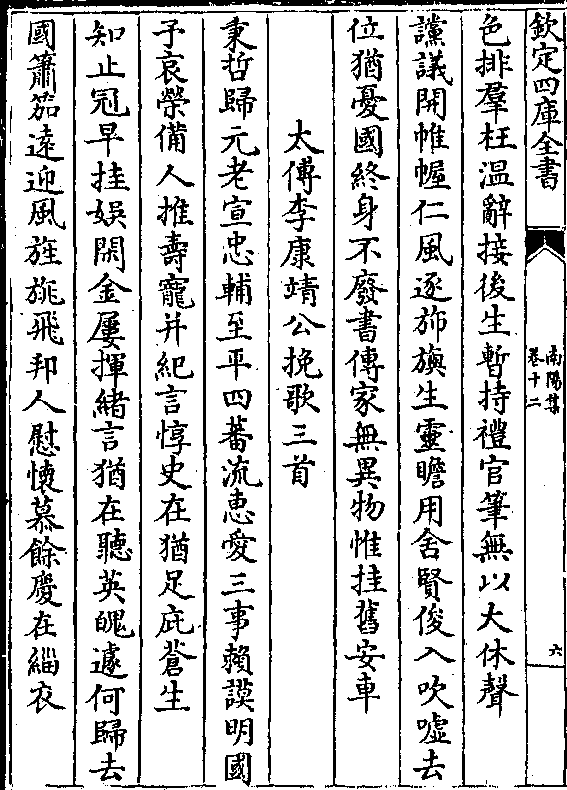 欽定四庫全書
南陽集
卷十二
六
色排羣枉溫辭接後生暫持禮官筆無以大休聲
讜議開帷幄仁風逐斾旟生靈瞻用舍賢俊入吹嘘去
位猶憂國終身不廢書傳家無異物惟挂舊安車
太傅李康靖公挽歌三首
秉哲歸元老宣忠輔至平四蕃流惠愛三事賴謨明國
予哀榮備人推壽寵并紀言惇史在猶足庇蒼生
知止冠早挂娯閑金屢揮緒言猶在聽英魄遽何歸去
國簫笳遠迎風旌旐飛邦人慰懷慕餘慶在緇衣